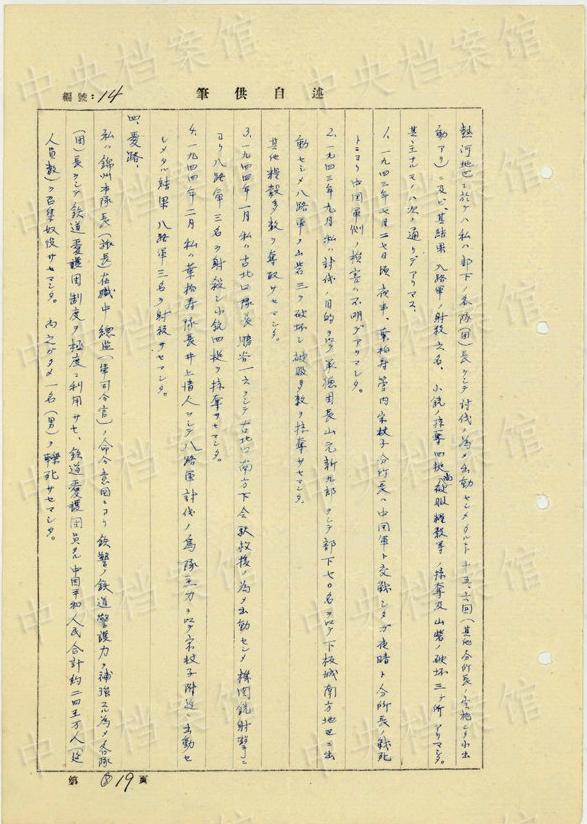 編號:14
述自供筆
熱河地区ニ於テハ私ハ部下ノ各隊(団)長ヲシテ討伐ノ為メ出動セシメタルコト十五、六回(其他分所長ノ実施シタ小出
動アリ)ニ及ビ、其結果 八路軍ノ射殺六名、小銃ノ掠奪四挺、被服糧穀等ノ掠奪及山砦ノ破坏三ケ所デアリマシタ。
其主ナルモノハ次ノ通リデアリマス、
1. 一九四三年七月二七日頃夜半、葉柏寿管内宋杖子分所長ハ中国軍ト交戦シタガ夜暗ト分所長ノ戦死
トニヨリ中国軍側ノ損害ハ不明デアリマシタ
2. 一九四三年九月私ハ討伐ノ目的ヲ以テ承徳団長山元新九郎ヲシテ部下七〇名ヲ以テ下板城南方地区ニ出
動セシメ八路軍ノ山砦三ヲ破坏シ被服多数ヲ掠奪サセマシタ、
其他糧穀多数ヲ奪取サセマシタ。
3. 一九四四年一月私ハ古北口隊長勝谷一六ヲシテ古北口南方下会駅救援ノ為メ出動セシメ機関銃射撃ニ
ヨリ八路軍三名ヲ射殺シ小銃四挺ヲ掠奪サセマシタ。
4. 一九四四年二月私ハ葉柏寿隊長井上清人ヲシテ八路軍討伐ノ為隊主力ヲ以テ宋杖子附近ニ出動セ
シメタル結果 八路軍三名ヲ射殺サセマシタ。
四、愛路、
私ハ錦州本隊長(旅長)在職中 総監(軍司令官)ノ命令意図ニヨリ鉄警ノ鉄道警護力ヲ補強スル為メ各隊
(団)長ヲシテ鉄道愛護団制度ヲ極度ニ利用サセ、鉄道愛護団員タル中国平和人民合計約二四五万人(延
人員数)ヲ召集奴役サセマシタ。内之ガタメ一名(男)ヲ轢死サセマシタ。
第19頁
中央档案馆